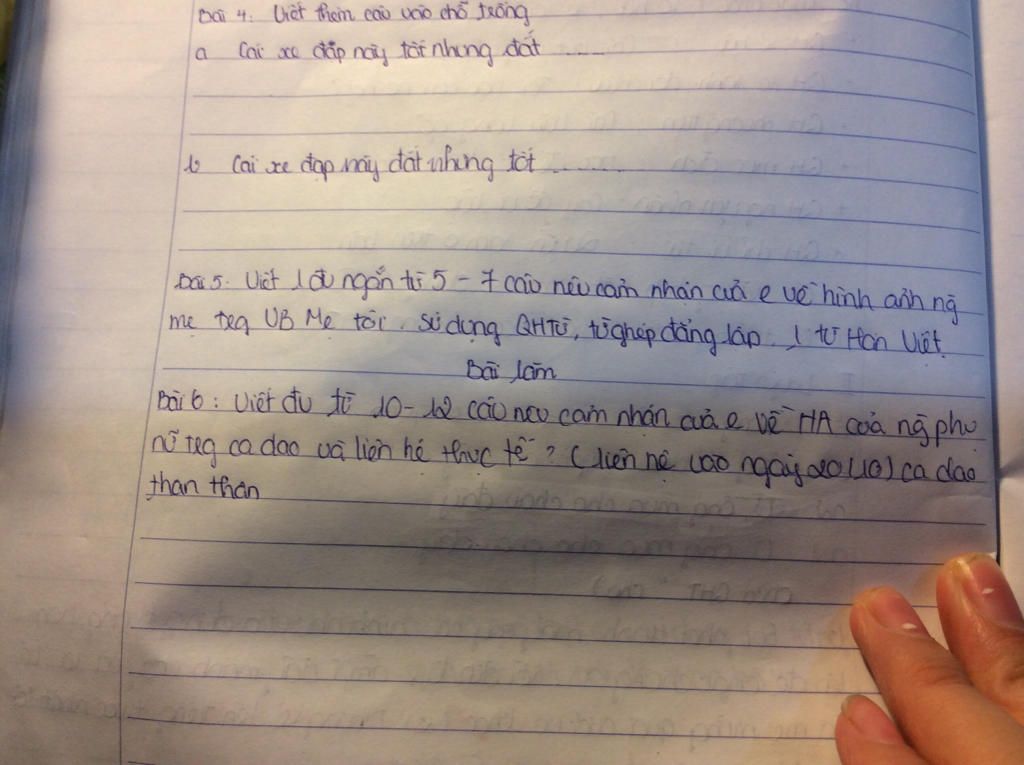 Bài 4: Viết thêm câu vào chỗ trống
a Cái xe đạp này tốt nhưng đắt ......
b Cái xe đạp này đắt nhưng tốt .........
Bài 5. Viết 1 đv ngắn từ 5 - 7 câu nêu cảm nhận của e về hình ảnh ng
mẹ trg VB Mẹ tôi. Sử dụng QHTừ, từ ghép đẳng lập. 1 từ Hán Việt.
Bài làm
Bài 6: Viết đv từ 10 - 12 câu nêu cảm nhận của e về HA của ng phụ
nữ trg ca dao và liên hệ thực tế? (liên hệ vào ngày 20/10) ca dao
than thân